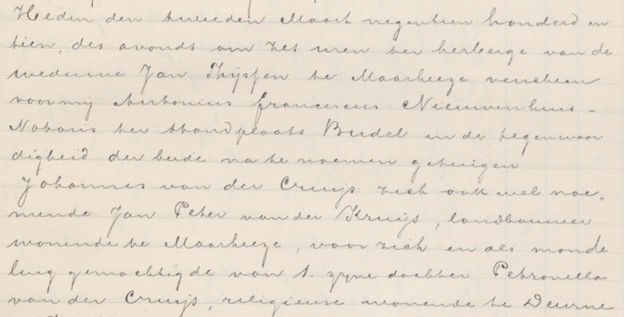 Heden den tweeden Maart negentien honderd en
tien, des avonds om zes uren ter herberge van de
weduwe Jan Thijssen te Maarheeze verscheen
voor mij Antonius Franciscus Nieuwenhuis
Notaris ter standplaats Budel in de tegenwoor
digheid der beide na te noemen getuigen
Johannes van der Cruijs zich ook wel noe-
mende Jan Peter van der Kruijs, landbouwer
wonende te Maarheeze, voor zich en als monde
ling gemachtigde van 1. zijne dochter Petronella
van der Cruijs, religieuse wonende te Deurne